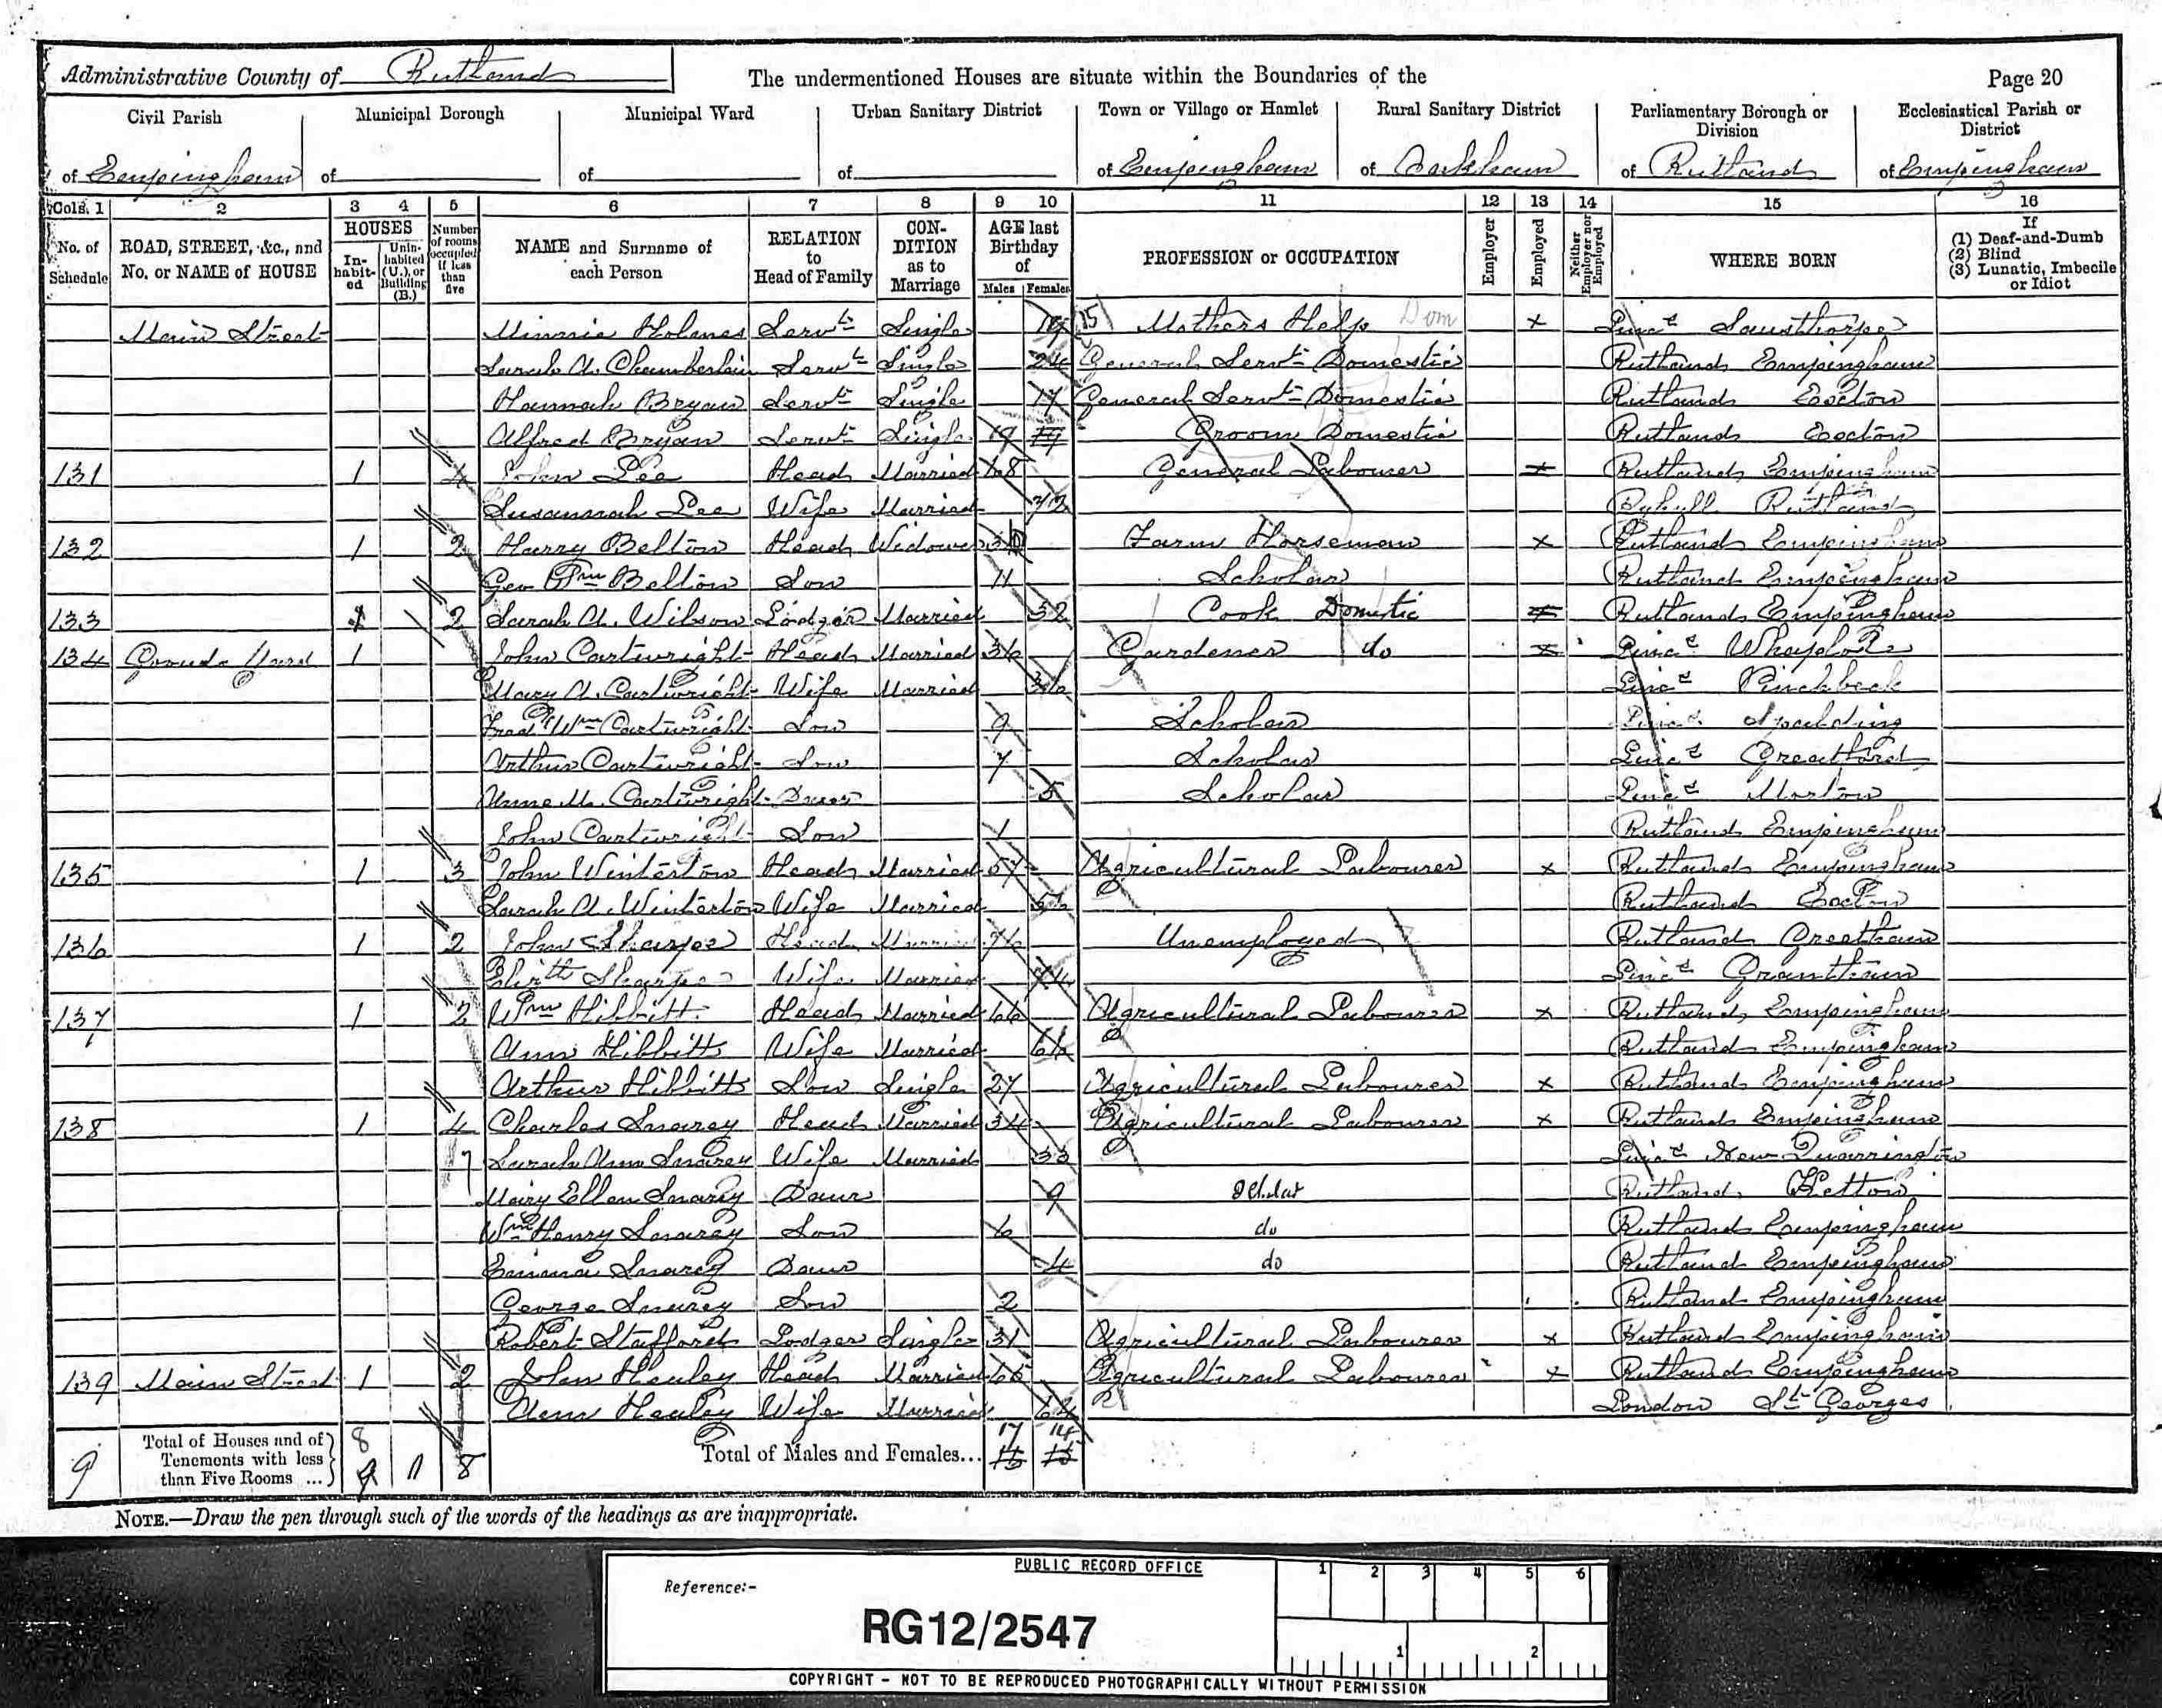 Administrative County of Rutland
The undermentioned Houses are situate within the Boundaries of the
Page 20
Civil Parish
Municipal Borough
Municipal Ward
Urban Sanitary District
Town or Village or Hamlet
Rural Sanitary District
Parliamentary Borough or Division
Ecclesiastical Parish or District
of Empingham of of of of Empingham of Oakham of Rutland of Empingham
Cols. 1 2 3 4 5 6 7 8 9 10 11 12 13 14 15 16
No. of Schedule
ROAD, STREET, &c., and No. or NAME of HOUSE
HOUSES
In-habit-ed
Unin-habited (U.), or Building (B.)
Number of rooms occupied if less than five
NAME and Surname of each Person
RELATION to Head of Family
CON-DITION as to Marriage
AGE last Birthday of
Males Females
PROFESSION or OCCUPATION
Employer
Employed
Neither Employer nor Employed
WHERE BORN
If
(1) Deaf-and-Dumb
(2) Blind
(3) Lunatic, Imbecile or Idiot
Main Street Minnie Holmes Servt Single 15 Mothers Help Dom x Lincs Sausthorpe
Sarah A. Chamberlain Servt Single 24 General Servt Domestic Rutland Empingham
Hannah Bryan Servt Single 17 General Servt Domestic Rutland Exton
Alfred Bryan Servt Single 19 19 Groom Domestic Rutland Exton
131 1 4 John Lee Head Married 68 General Labourer x Rutland Empingham
Susannah Lee Wife Married 72 Rutland
132 1 2 Harry Belton Head Widower Farm Horseman x Rutland Empingham
Geo Wm Belton Son 11 Scholar Rutland Empingham
133 1 2 Sarah A. Wilson Lodger Married 32 Cook Domestic x Rutland Empingham
134 Yard 1 John Cartwright Head Married 36 Gardener do x Lincs Whaplode
Mary A. Cartwright Wife Married 36 Lincs Pinchbeck
Fred Wm Cartwright Son 9 Scholar Lincs Spalding
Arthur Cartwright Son 7 Scholar Lincs Greatford
Anne M. Cartwright Daur 5 Scholar Lincs Morton
John Cartwright Son 1 Rutland Empingham
135 1 3 John Winterton Head Married 57 Agricultural Labourer x Rutland Empingham
Sarah A. Winterton Wife Married 56 Rutland Exton
136 1 2 John Sharpe Head Married 76 Unemployed Rutland Greetham
Elizth Sharpe Wife Married 74 Lincs Grantham
137 1 2 Wm Hibbitt Head Married 66 Agricultural Labourer x Rutland Empingham
Ann Hibbitt Wife Married 66 Rutland Empingham
Arthur Hibbitt Son Single 27 Agricultural Labourer x Rutland Empingham
138 1 4 Charles Snarey Head Married 34 Agricultural Labourer x Rutland Empingham
7 Sarah Ann Snarey Wife Married 33 Lincs New Quarrington
Mary Ellen Snarey Daur 9 Scholar Rutland Ketton
Wm Henry Snarey Son 6 do Rutland Empingham
Emma Snarey Daur 4 do Rutland Empingham
George Snarey Son 2 Rutland Empingham
Robert Stafford Lodger Single 31 Agricultural Labourer x Rutland Empingham
139 Main Street 1 2 John Healey Head Married 65 Agricultural Labourer x Rutland Empingham
Ann Healey Wife Married 64 London St Georges
9 Total of Houses and of Tenements with less than Five Rooms ... 8 9 8 Total of Males and Females... 17 14 15
NOTE.—Draw the pen through such of the words of the headings as are inappropriate.
PUBLIC RECORD OFFICE
Reference:-
RG12/2547
1 2 3 4 5 6
1 2
COPYRIGHT - NOT TO BE REPRODUCED PHOTOGRAPHICALLY WITHOUT PERMISSION